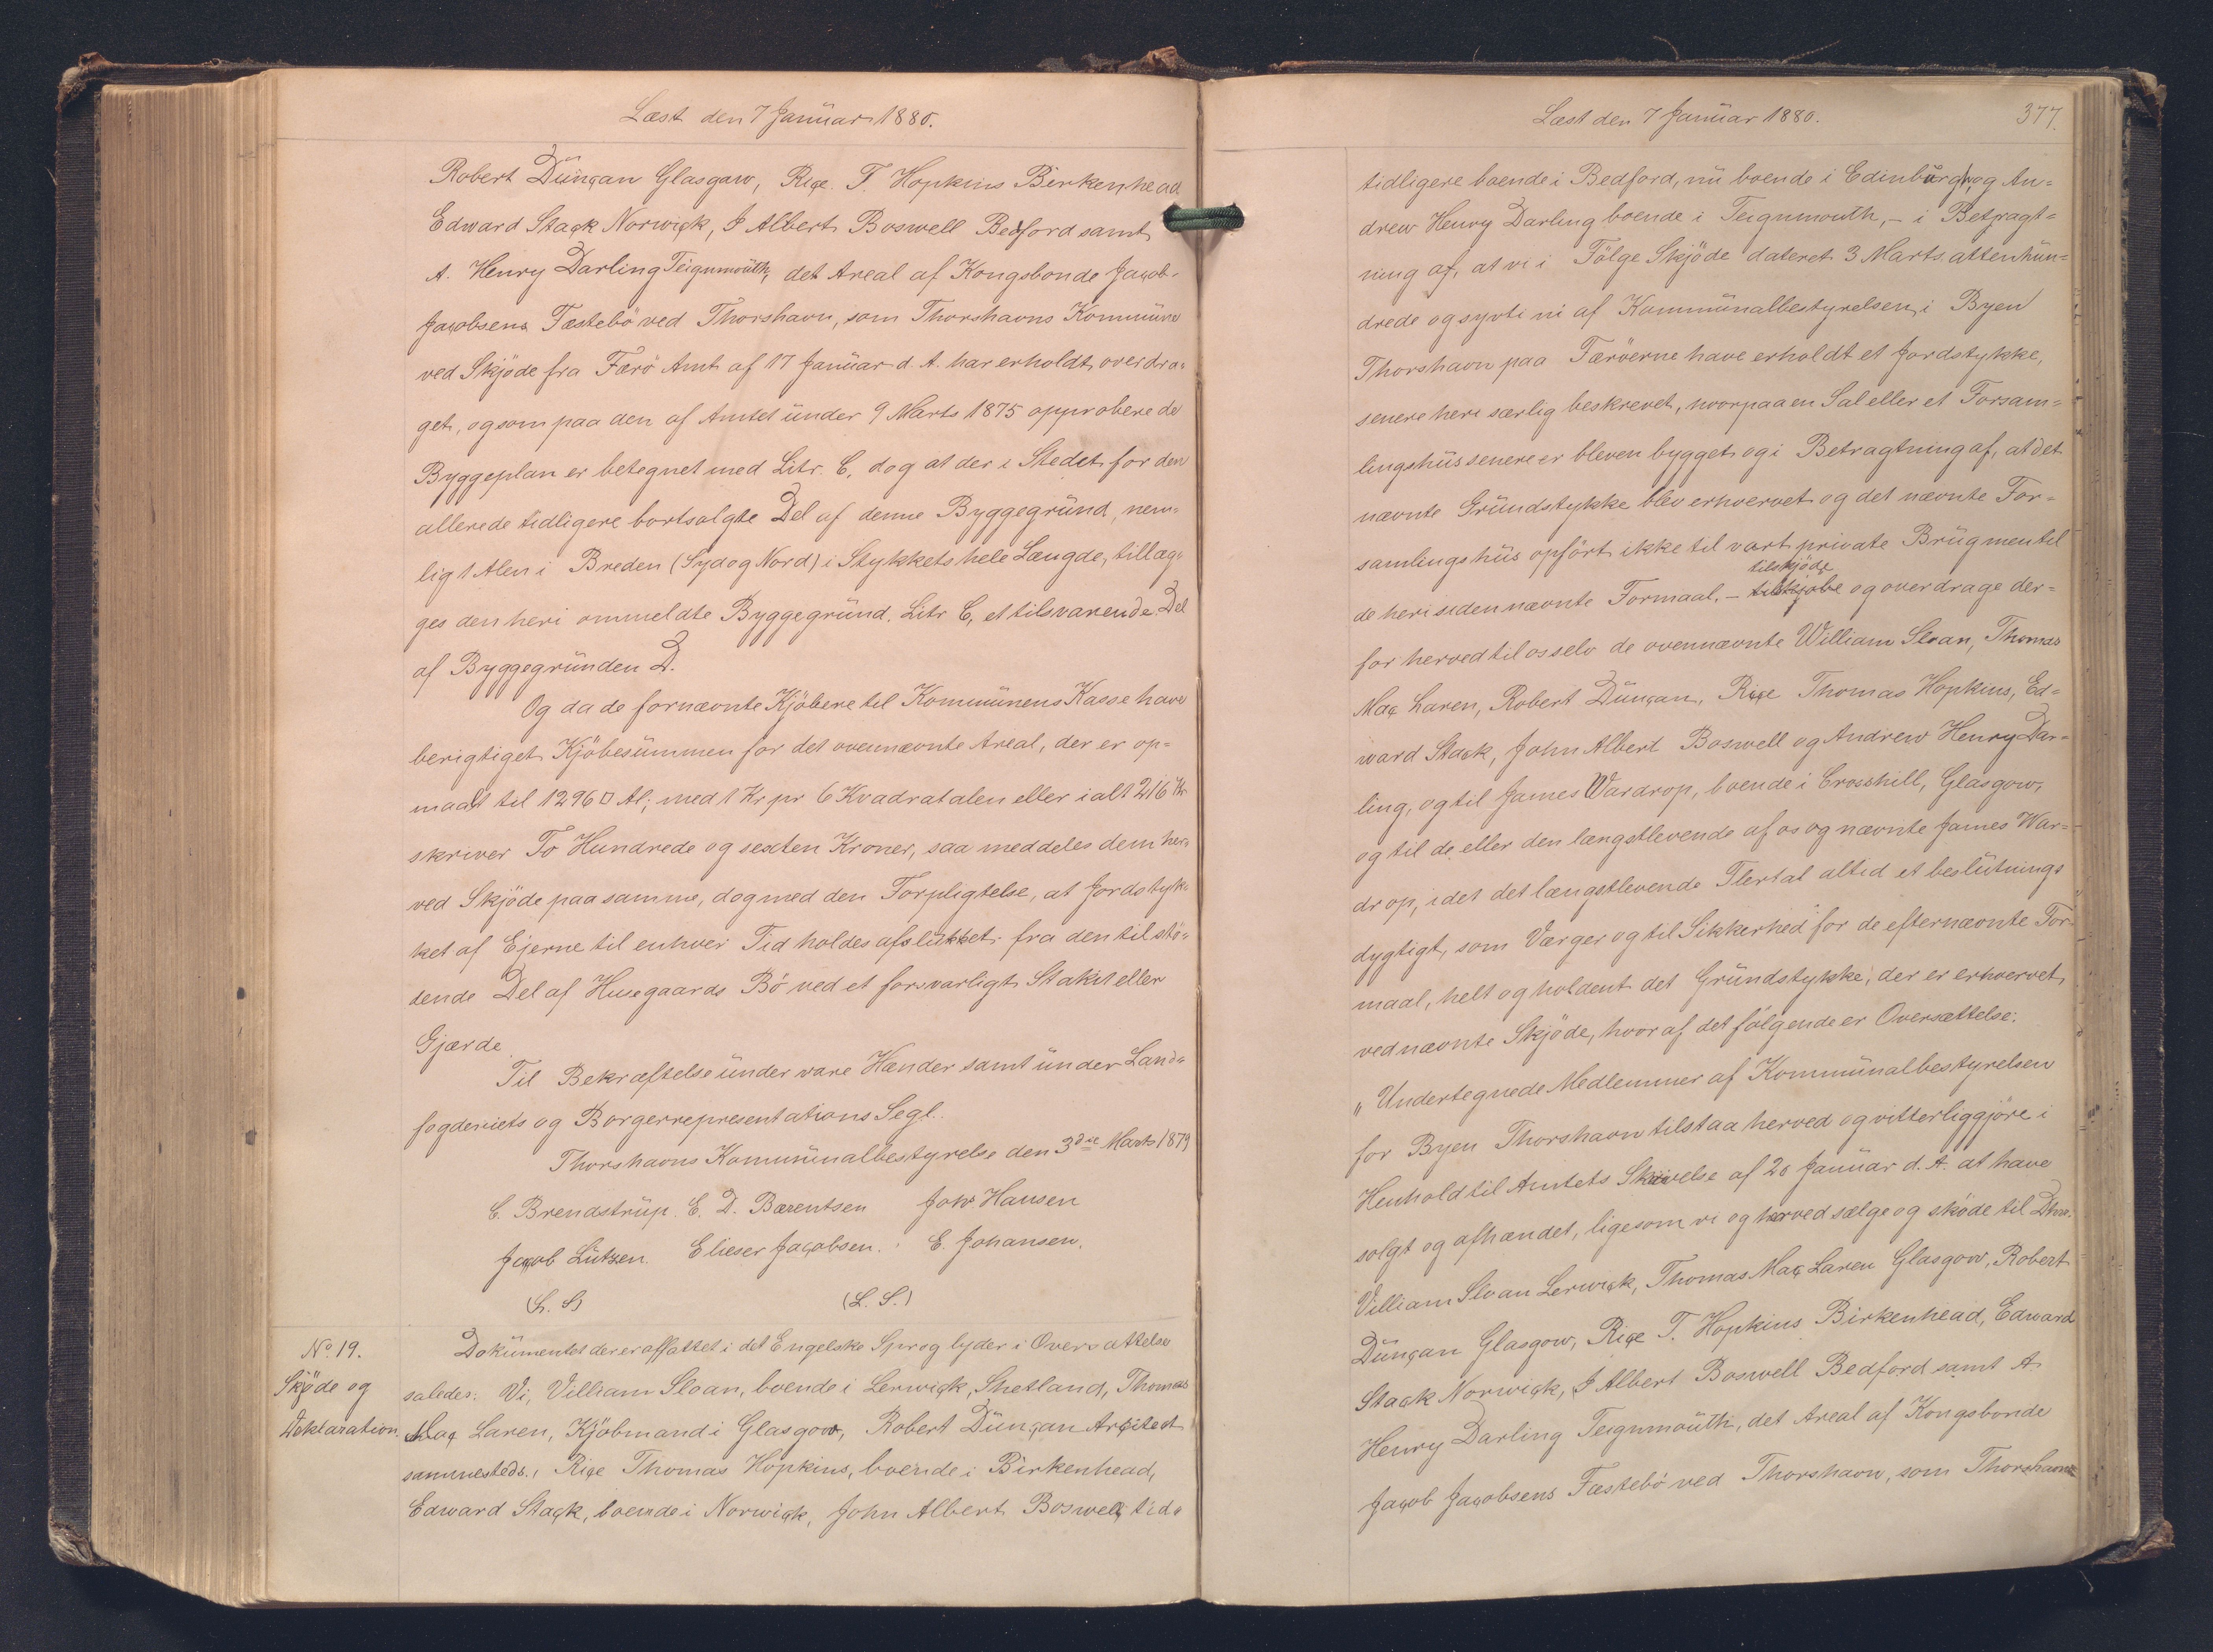 Læst den 7 Januar 1880.
Robert Dunçan Glasgaw, Riçe. T. Hopkins Birkenhead
Edward Staçk Norwiçk, J Albert Boswell Bedford samt
A. Henry Darling Teignmouth, det Areal af Kongsbonde Jaçob
Jaçobsens Fæstebö ved Thorshavn, som Thorshavns Kommune
ved Skjöde fra Færö Amt af 17 Januar d. A. har erholdt overdra=
get, og som paa den af Amtet under 9 Marts 1875 approberede
Byggeplan er betegnet med Litr. C, dog at der i Stedet for den
allerede tidligere bortsolgte Del af denne Byggegrund, nem=
lig 1 Alen i Breden (Syd og Nord) i Stykkets hele Længde, tillæg=
ges den heri ommeldte Byggegrund. Litr C, et tilsvarende Del
af Byggegrunden D.
Og da de fornævnte Kjöbere til Kommunens Kasse have
berigtiget Kjöbesummen for det ovennævnte Areal, der er op=
maalt til 1296 □ Al; med 1 Kr pr 6 Kvadratalen eller ialt 216 Kr
skriver To Hundrede og sexten Kroner, saa meddeles dem her=
ved Skjöde paa samme, dog med den Forpligtelse, at Jordstyk=
ket af Ejerne til enhver Tid holdes aflukket fra den tilstö=
dende Del af Husegaards Bö ved et forsvarligt Stakit eller
Gjærde
Til Bekræftelse under vare Hænder samt under Land=
fogderiets og Borgerrepresentations Segl.
Thorshavns Kommunalbestyrelse den 3die Marts 1879
C. Brendstrup. E. D. Bærentsen Joh. Hansen
Jaçob Lützen. Elieser Jaçobsen. E. Johansen.
(L. S) (L. S.)
No. 19.
Skjöde og
Deklaration.
Dokumentet der er affattet i det Engelske Sprog lyder i Oversættelse
saledes: Vi, Villiam Sloan, boende i Lerwiçk, Shetland, Thomas
Maç Laren, Kjöbmand i Glasgow, Robert Dunçan Arçitect
sammesteds., Riçe Thomas Hopkins, boende i Birkenhead,
Edward Staçk, boende i Norwiçk, John Albert Boswell tid=
Læst den 7 Januar 1880. 377.
tidligere boende i Bedford, nu boende i Edinburgh, og An=
drew Henry Darling boende i Teignmouth, - i Betragt=
ning af, at vi i Fölge Skjöde dateret 3 Marts attenhun=
drede og syvti ni af Kommunalbestyrelsen, i Byen
Thorshavn paa Færöerne have erholdt et Jordstykke,
senere heri særlig beskrevet, hvorpaa en Sal eller et Forsam=
lingshus senere er bleven bygget og i Betragtning af, at det
nævnte Grundstykke blev erhvervet og det nævnte For=
samlingshus opfört ikke til vart private Brug men til
tilskjöde
de heri siden nævnte Formaal, - tilskjobe og overdrage der=
for herved til os selv de ovennævnte William Sloan, Thomas
Maç Laren, Robert Dunçan, Riçe Thomas Hopkins, Ed=
ward Staçk, John Albert Boswell og Andrew Henry Dar=
ling, og til James Wardrop, boende i Crosshill, Glasgow,
og til de eller den længstlevende af os og nævnte James War=
drop, idet det længstlevende Flertal altid et beslutnings
dygtigt, som Værger og til Sikkerhed for de efternævnte For=
maal, helt og holdent det Grundstykke, der er erhvervet
ved nævnte Skjöde, hvoraf det fölgende er Oversættelse:
„Undertegnede Medlemmer af Kommunalbestyrelsen
for Byen Thorshavn tilstaa herved og vitterliggjöre i
Henhold til Amtets Skrivelse af 20 Januar d. A. at have
solgt og afhændet, ligesom vi og herved sælge og sköde til Dhrr.
Villiam Sloan Lerwiçk, Thomas Maç Laren Glasgow, Robert
Dunçan Glasgow, Riçe T. Hopkins Birkenhead, Edward
Staçk Norwiçk, J Albert Boswell Bedford samt A.
Henry Darling Teignmouth, det Areal af Kongsbonde
Jaçob Jaçobsens Fæstebö ved Thorshavn, som Thorshavns